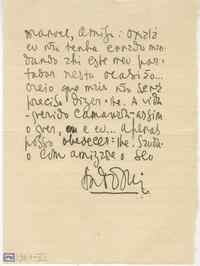 manoel, amigo: oxalá
eu não tenha errado man
dando-lhe este meu por
nesta ocasião...
creio que mais não será
preciso dizer-lhe. A vida
querido camarada - assim
o quer, eu e eu... apenas
posso obedecer-lhe. Saúda
o com amizade o seo